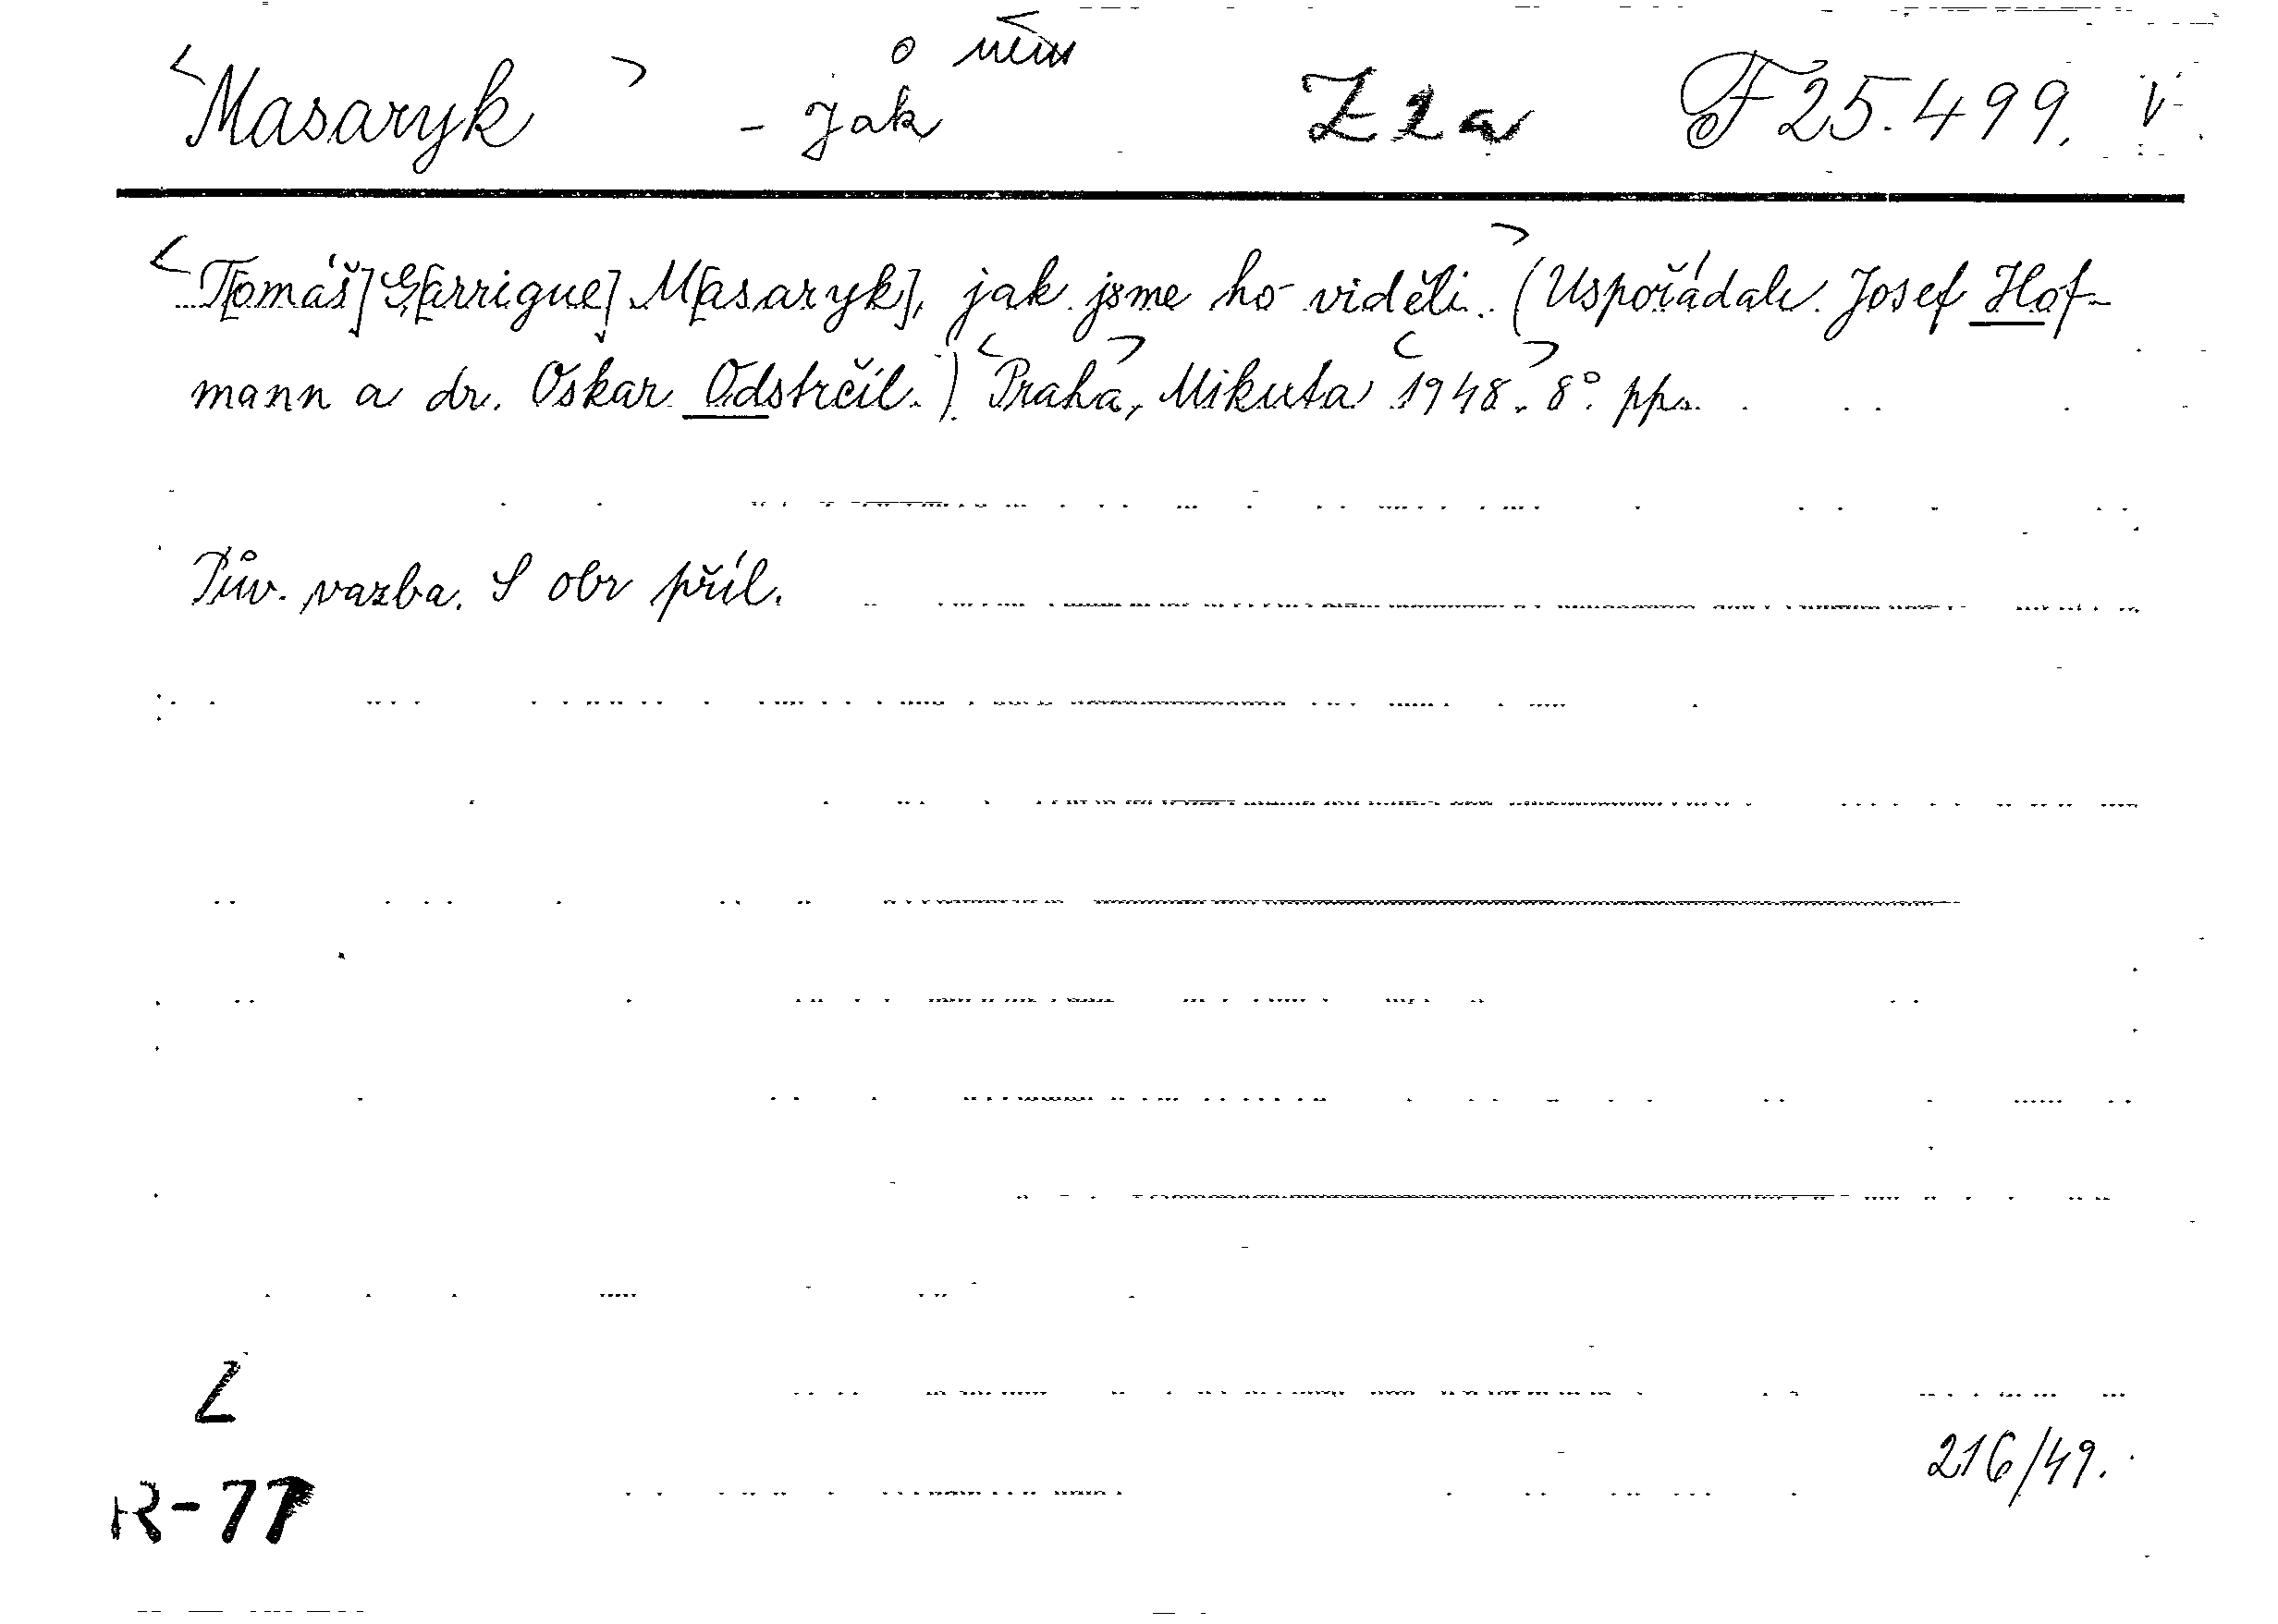 o něm
<Masaryk> - Jak Z 2 a F 25.499. V
<T[omáš] G[arrigue] M[asaryk], jak jsme ho viděli.> (Uspořádali Josef Hof-
mann a dr. Oskar Odstrčil.) <Praha>, Mikuta <1948.> 8° pps.
Pův. vazba. S obr příl.
Z
216/49.
R-77